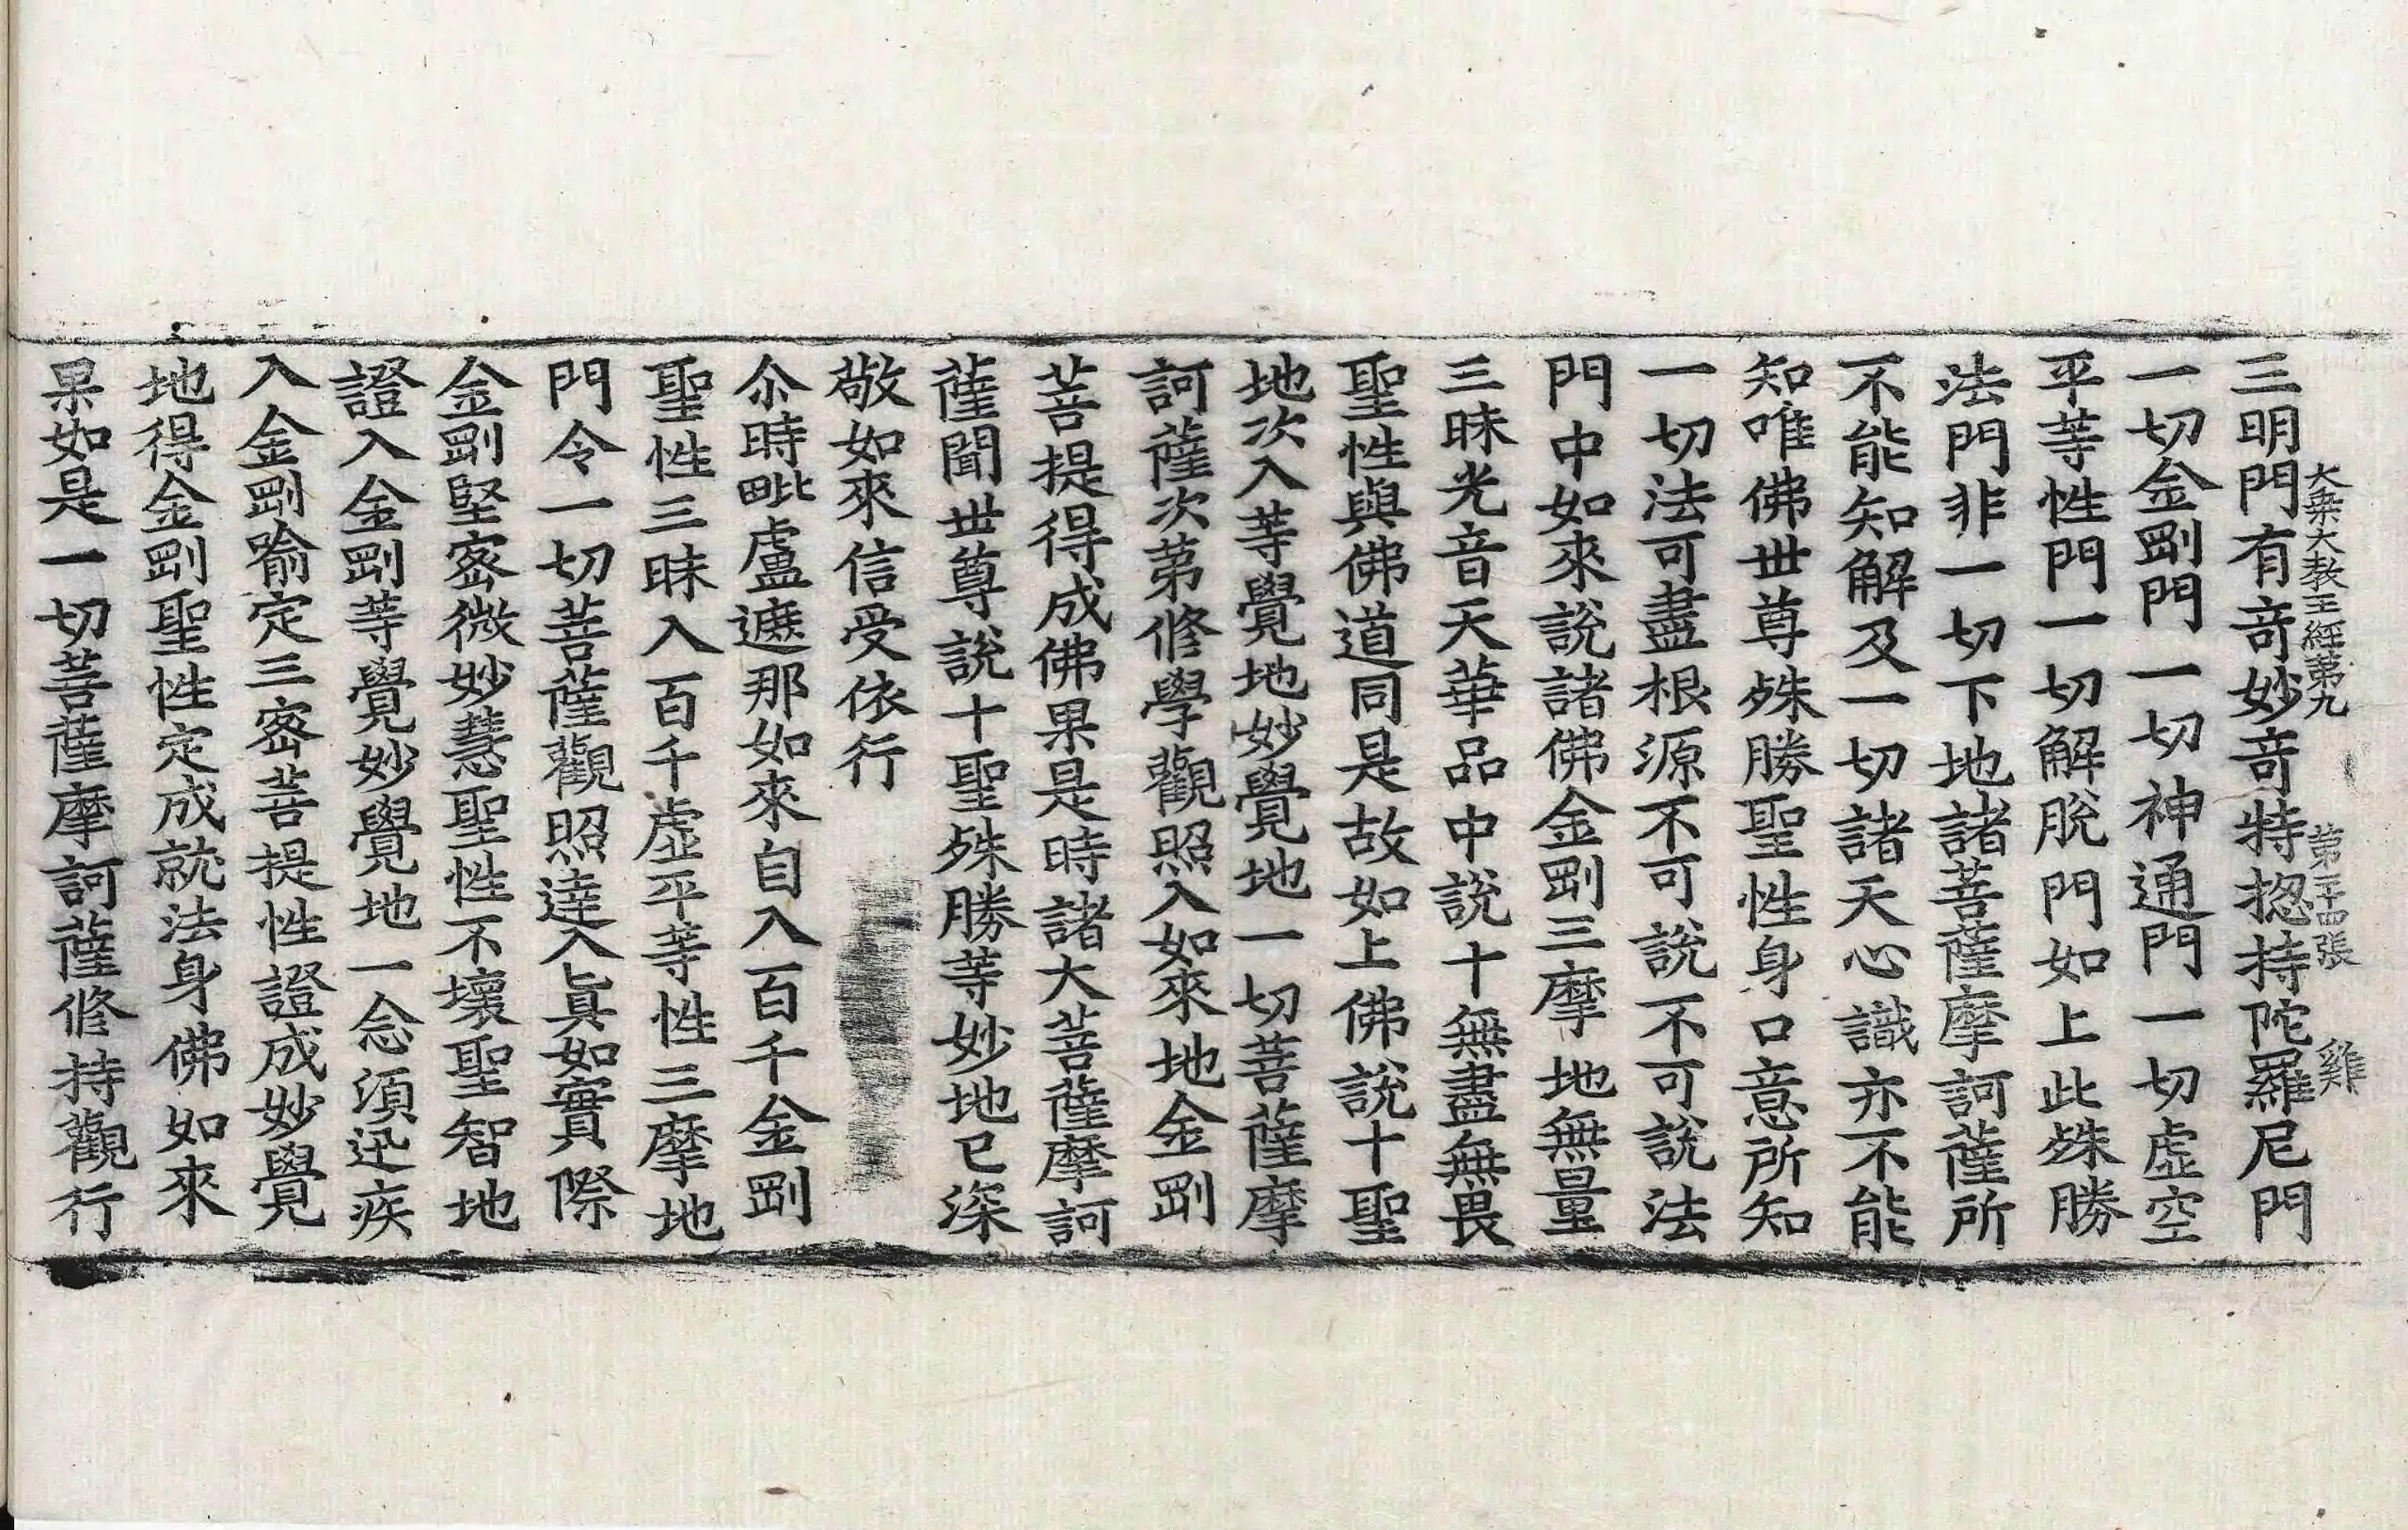 大乗大教王經第九 第二十四張 雞
三明門有竒妙竒特揔持陀羅尼門
一切金剛門一切神通門一切虛空
平等性門一切解脫門如上此殊勝
法門非一切下地諸菩薩摩訶薩所
不能知解及一切諸天心識亦不能
知唯佛世尊殊勝聖性身口意所知
一切法可盡根源不可說不可說法
門中如來說諸佛金剛三摩地無量
三昧光音天華品中說十無盡無畏
聖性與佛道同是故如上佛說十聖
地次入等覺地妙覺地一切菩薩摩
訶薩次第修學觀照入如來地金剛
菩提得成佛果是時諸大菩薩摩訶
薩聞世尊說十聖殊勝等妙地已深
敬如來信受依行
尒時毗盧遮那如來自入百千金剛
聖性三昧入百千虛平等性三摩地
門令一切菩薩觀照達入眞如實際
金剛堅密微妙慧聖性不壞聖智地
證入金剛等覺妙覺地一念須迅疾
入金剛喻定三密菩提性證成妙覺
地得金剛聖性定成就法身佛如來
果如是一切菩薩摩訶薩修持觀行